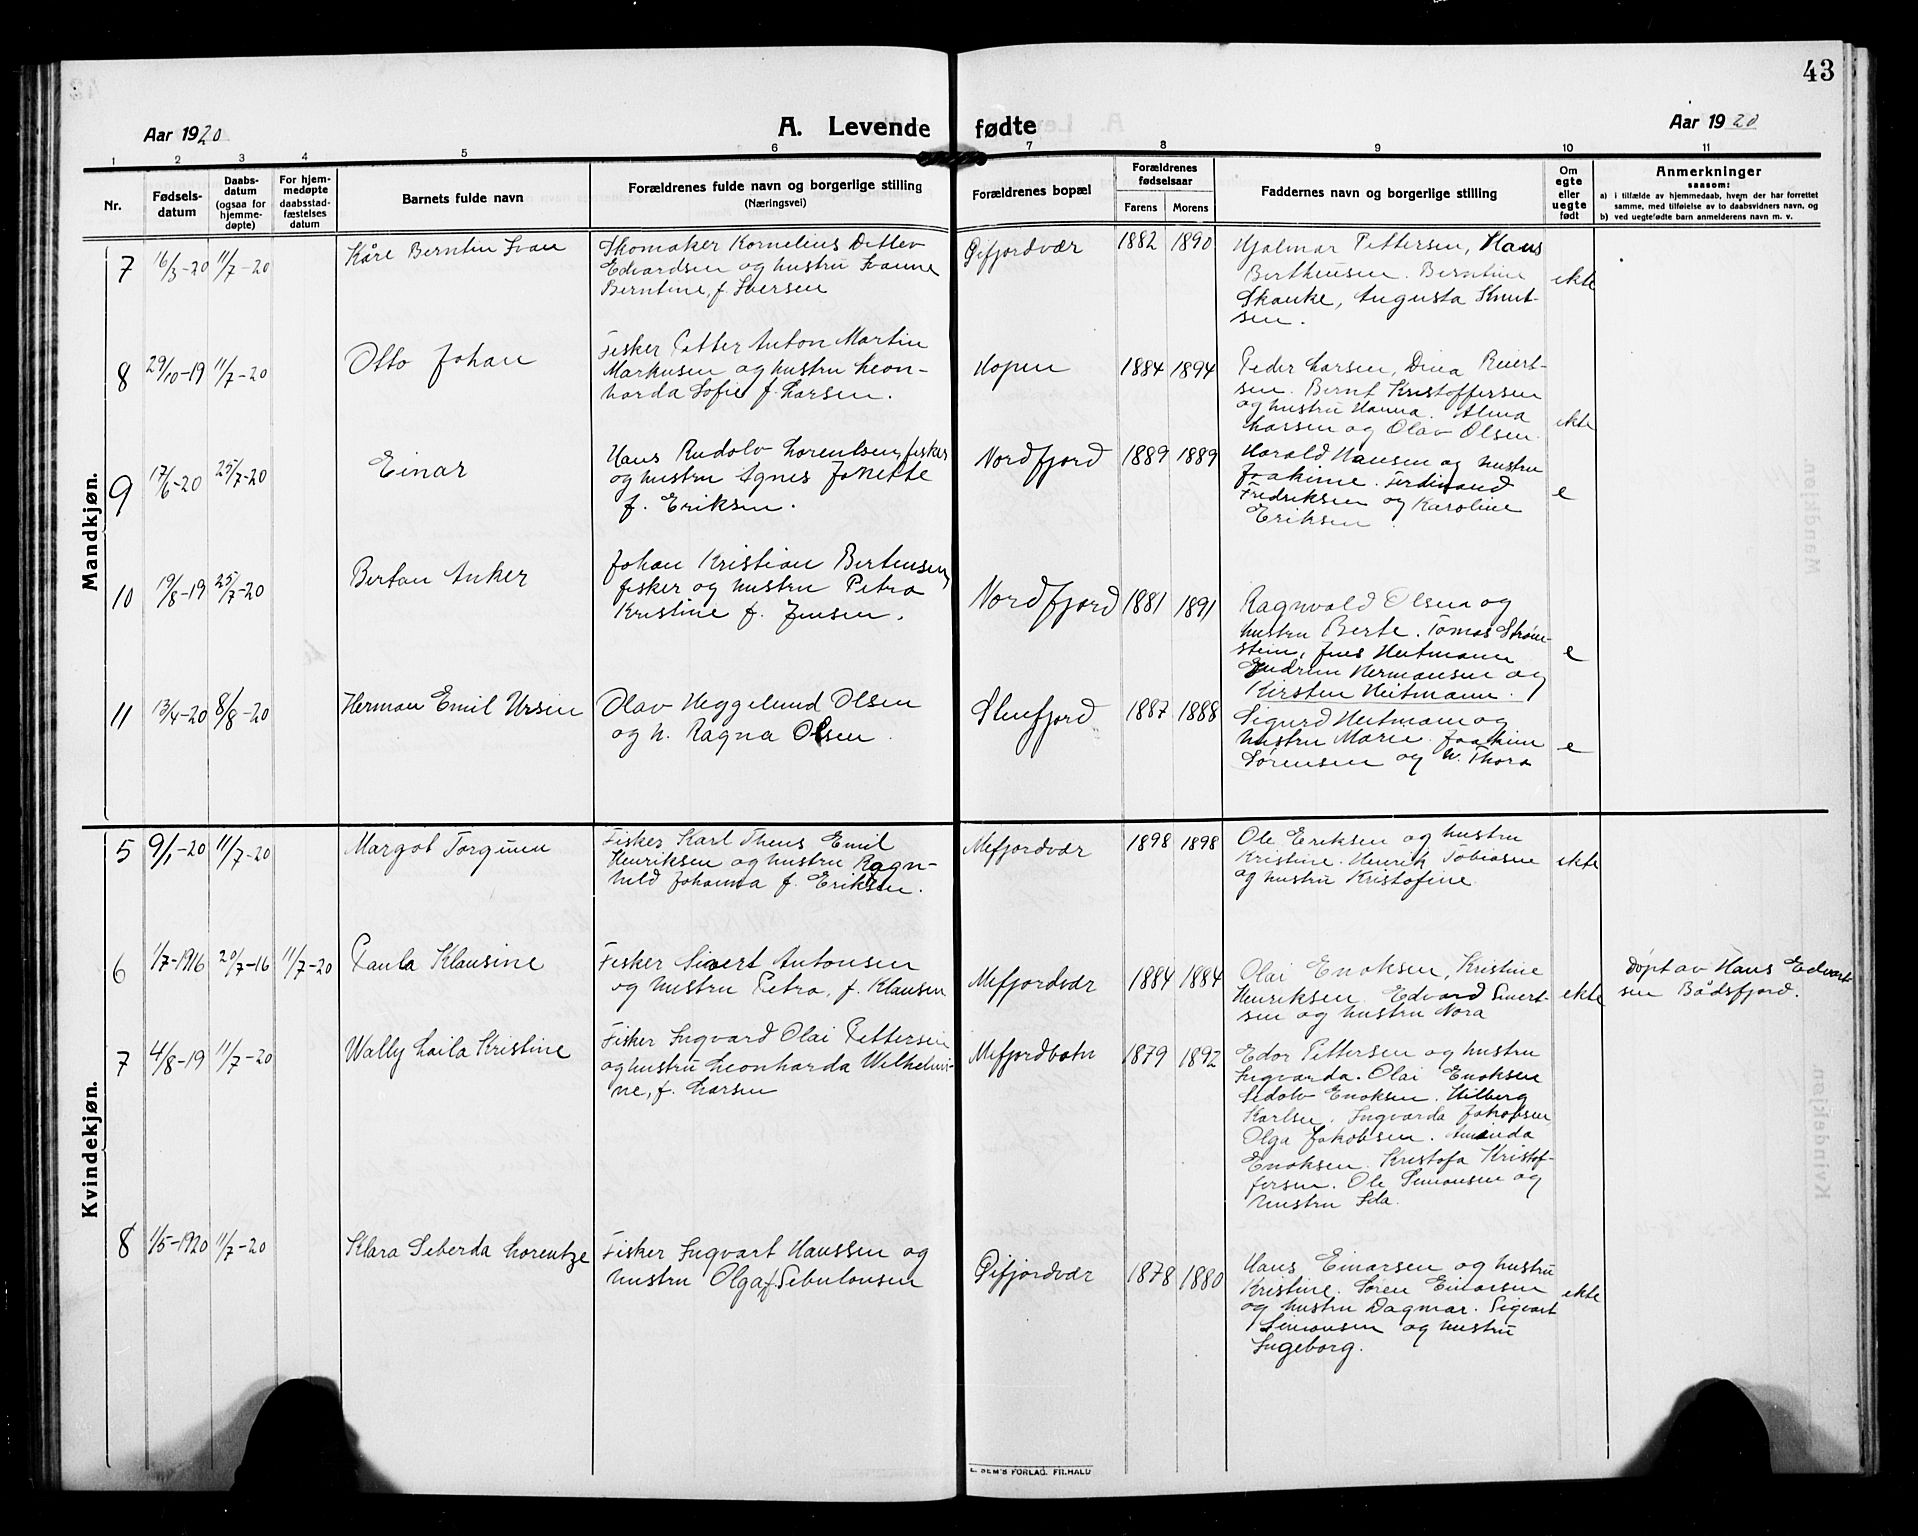 43
Aar 1920
A. Levende fødte
Aar 1920
1 2 3 4 5 6 7 8 9 10 11
Nr.
Fødsels-
datum
Daabs-
datum
(ogsaa for
hjemme-
døpte)
For hjem-
medøpte
daabsstad-
fæstelses
datum
Barnets fulde navn
Forældrenes fulde navn og borgerlige stilling
(Næringsvei)
Forældrenes bopæl
Forældrenes
fødselsaar
Farens Morens
Faddernes navn og borgerlige stilling
Om
egte
eller
uegte
født
Anmerkninger
saasom:
a) i tilfælde av hjemmedaab, hvem der har forrettet
samme, med tilføielse av to daabsvidners navn, og
b) ved uegtefødte barn anmelderens navn m. v.
Mandkjøn.
7 16/3-20 11/7-20 Kåre Berntin Ivan
Skomaker Kornelius Ditlev
Edvardsen og hustru Ivanna
Berntine, f. Iversen
Øifjordvær 1882 1890
Hjalmar Pettersen, Hans
Bertheusen. Berntine
Skanke, Augusta Knut-
sen.
ekte
8 29/10-19 11/7-20 Otto Johan
Fisker Petter Anton Martin
Markusen og hustru Leon-
harda Sofie f. Larsen.
Hopen 1884 1894
Peder Larsen, Dina Reiert-
sen. Bernt Kristoffersen
og hustru Hanna. Alma
Larsen og Olav Olsen.
ekte
9 17/6-20 25/7-20 Einar
Hans Rudolv Lorentsen, fisker
og hustru Agnes Jonette
f. Eriksen.
Nordfjord 1889 1889
Harald Hansen og hustru
Joakime. Ferdinand
Fredriksen og Karoline
Eriksen
e
10 19/8-19 25/7-20 Bertan Anker
Johan Kristian Bertensen,
fisker og hustru Petra
Kristine f. Jensen.
Nordfjord 1881 1891
Ragnvald Olsen og
hustru Berte. Tomas Strøm-
stein, Jens Heitmann
Gudrun Hermansen og
Kirsten Heitmann.
e
11 13/4-20 8/8-20 Herman Emil Ursin
Olav Heggelund Olsen
og h. Ragna Olsen.
Stenfjord 1887 1888
Sigurd Heitmann og
hustru Marie. Joakim
Sørensen og h. Thora
e
Kvindekjøn.
5 9/1-20 11/7-20 Margot Torgunn
Fisker Karl Thens Emil
Henriksen og hustru Ragn-
hild Johanna f. Eriksen.
Mefjordvær 1898 1898
Ole Eriksen og hustru
Kristine. Henrik Tobiasen
og hustru Kristofine.
ekte
6 1/7-1916 20/7-16 11/7-20 Paula Klausine
Fisker Sivert Antonsen
og hustru Petra, f. Klausen
Mefjordvær 1884 1884
Olai Enoksen, Kristine
Henriksen. Edvard Sivert-
sen og hustru Nora
ekte
Døpt av Hans Edvart-
sen Bådsfjord.
7 4/8-19 11/7-20 Wally Laila Kristine
Fisker Ingvard Olai Pettersen
og hustru Leonharda Wilhelmi-
ne, f. Larsen
Mefjordbotn 1879 1892
Edor Pettersen og hustru
Ingvarda. Olai Enoksen
Sedolv Enoksen. Hilberg
Karlsen. Ingvarda Jakobsen
Olga Jakobsen. Amanda
Enoksen. Kristofa Kristof-
fersen. Ole Simonsen og
hustru Ida.
8 1/5-1920 11/7-20 Klara Seberda Lorentze
Fisker Ingvart Hanssen og
hustru Olga f. Sebulonsen
Øifjordvær 1878 1880
Hans Einarsen og hustru
Kristine. Søren Einarsen
og hustru Dagmar. Sigvart
Simonsen og hustru
Ingeborg.
ekte
E. SEM'S FORLAG, FR.HALD